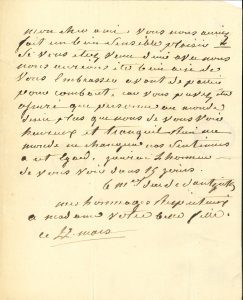 mon cher ami vous nous auriez
fait un bien sensible plaisir
si vous etiez venu avec nous
nous aurions été bien aise de
vous embrasser avant de partir
pour car vous pouvez être
assuré que personne au monde
plus que nous de vous voir
heureux et tranquil
monde ne changera nos sentimens
a cet égard, j'aurai l'honneur
de vous voir dans 15 jours.
mes hommages respectueux
a madame votre belle fille.
ce 22 mars